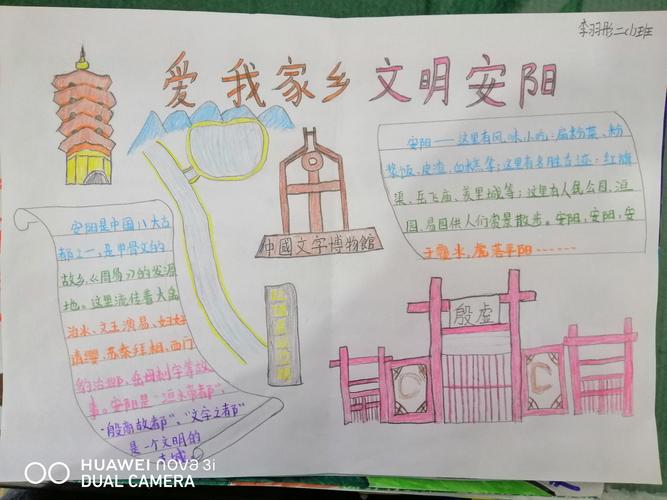 李羽彤二(1)班
爱我家乡 文明安阳
安阳——这里有风味小吃:扁粉菜、粉
浆饭、皮渣、血糕等;这里有名胜古迹:红旗
渠、岳飞庙、羑里城等;这里有人民公园、洹
园、易园供人们赏景散步。安阳,安阳,安
中國文字博物館
殷虚
安阳是中国八大古
都之一,是甲骨文的
故乡,《周易》的发源
地。这里流传着大禹
治水、文王演易、妇好
请缨、苏秦拜相、西门
豹治邺、岳母刺字等故
事。安阳是"洹水帝都"、
"殷商故都"、"文字之都"
是一个文明的
古城
HUAWEI nova 3i
DUAL CAMERA